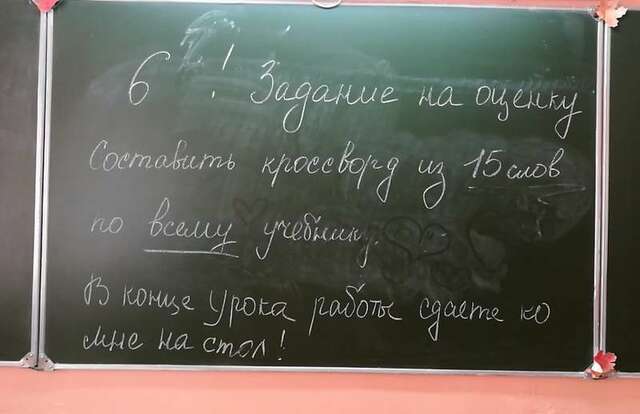 6 ! Задание на оценку
Составить кроссворд из 15 слов
по всему учебнику.
В конце урока работы сдаете ко
мне на стол!